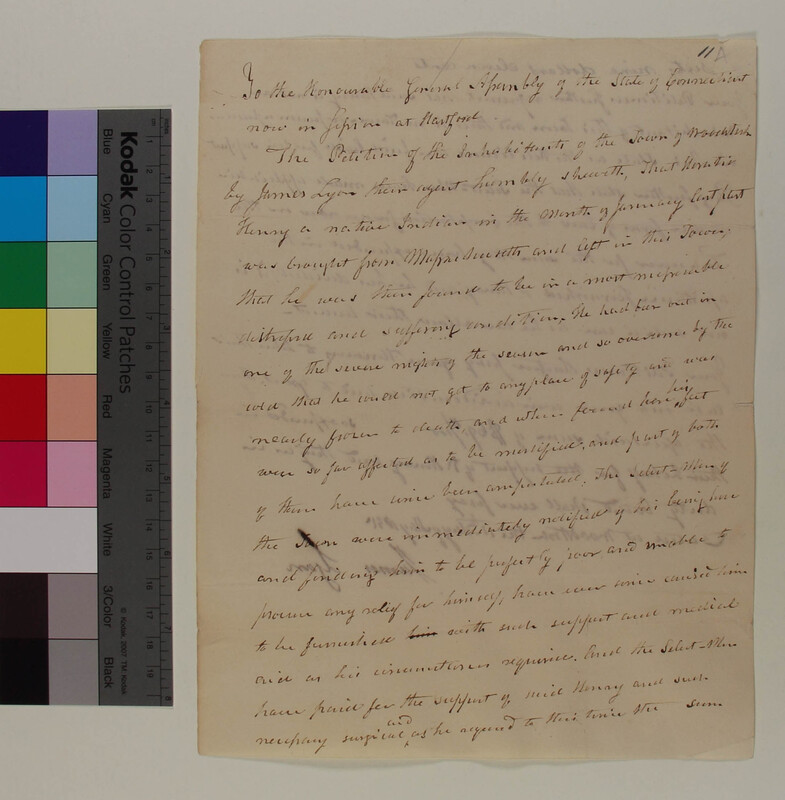 11
To the Honourable General Assembly of the State of Connecticut
now in Session at Hartford
The Petition of the Inhabitants of the Town of Woodstock
by James Lyon their agent humbly sheweth, That Horatio
Henry a native Indian in the Month of January last past
was brought from Massachusetts and left in this Town;
that he was then found to be in a most miserable
distressed and suffering condition. He had ben out in
one of the severe nights of the season and so overcome by the
cold that he could not get to any place of safety and was
nearly frozen to death, and when found here his feet
were so far affected as to be mortified, and part of both
of them have since been amputated. The Select-Men of
the Town were immediately notified of his being here
and finding him to be perfectly poor and unable to
procure any relief for himself, have ever since caused him
to be furnished him with such support and medical
aid as his circumstances required. And the Select-Men
have paid for the support of said Henry and such
necessary surgical aid as he required to this time the sum
Kodak Color Control Patches
Blue
Cyan
Green
Yellow
Red
Magenta
White
3/Color
Black
© Kodak, 2007 TM: Kodak
cm 1 2 3 4 5 6 7 8 9 10 11 12 13 14 15 16 17 18 19
inches 1 2 3 4 5 6 7 8